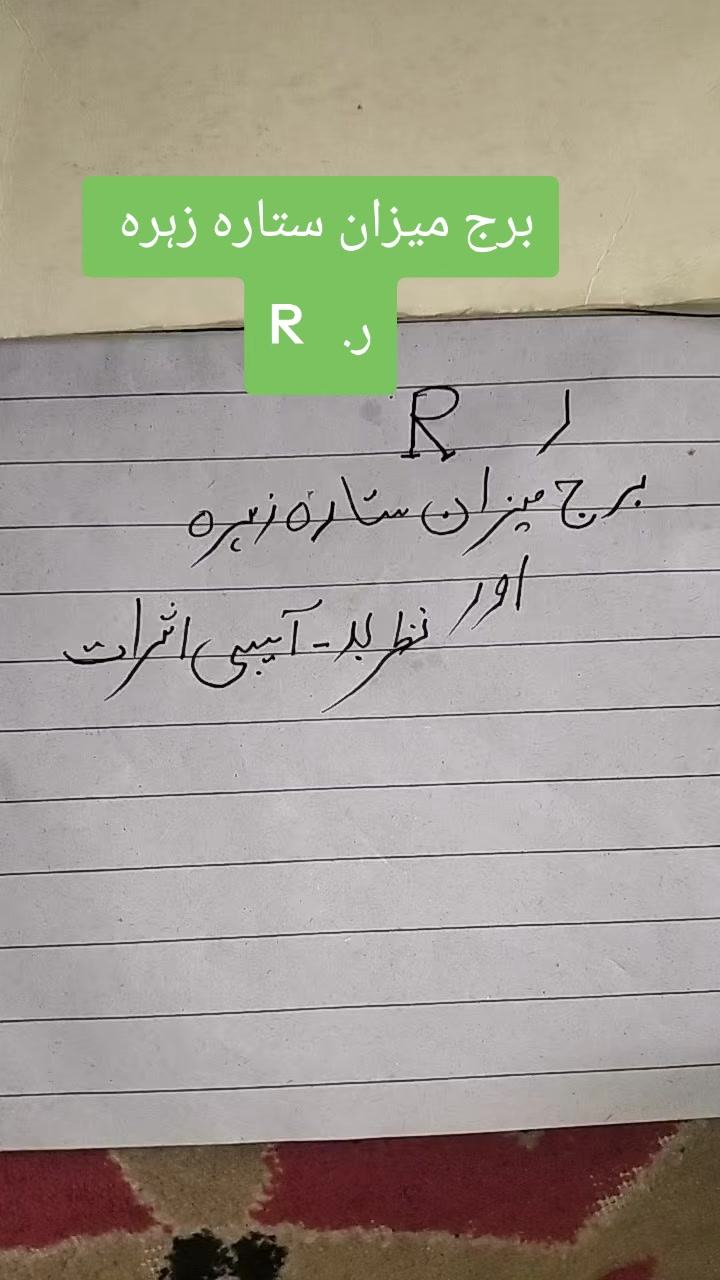 برج میزان ستارہ زہرہ
ر. R
ر R
برج میزان ستارہ زہرہ
اور
نظر بد - آسیبی اثرات